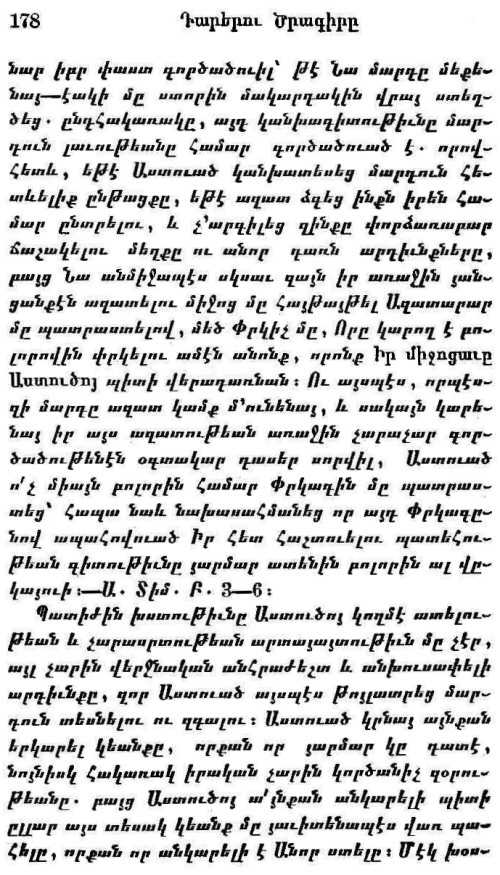 178 Դարերու Ծրագիրը
նար իբր փաստ գործածուիլ՝ թէ Նա մարդը մեքե-
նայ—էակի մը ստորին մակարդակին վրայ ստեղ-
ծեց. ընդհակառակը, այդ կանխագիտութիւնը մար-
դուն լաւութեանը համար գործածուած է. որով-
հետև, եթէ Աստուած կանխատեսեց մարդուն հե-
տևելիք ընթացքը, եթէ ազատ ձգեց ինքն իրեն հա-
մար ընտրելու, և չ'արգիլեց զինքը փորձառաբար
ճաշակելու մեղքը ու անոր դառն արդիւնքները,
բայց Նա անմիջապէս սկսաւ զայն իր առաջին յան-
ցանքէն ազատելու միջոց մը հայթայթել Ազատարար
մը պատրաստելով, մեծ Փրկիչ մը, Որը կարող է բո-
լորովին փրկելու ամէն անոնք, որոնք Իր միջոցաւը
Աստուծոյ պիտի վերադառնան: Ու այսպէս, որպէս-
զի մարդը ազատ կամք մ'ունենայ, և սակայն կարե-
նայ իր այս ազատութեան առաջին չարաչար գոր-
ծածութենէն օգտակար դասեր սորվիլ, Աստուած
ո՛չ միայն բոլորին համար Փրկագին մը պատրաս-
տեց՝ հապա նաև նախասահմանեց որ այդ Փրկագը-
նով ապահովուած Իր հետ հաշտուելու պատեհու-
թեան գիտութիւնը յարմար ատենին բոլորին ալ վը-
կայուի:—Ա. Տիմ. Բ. 3—6:
Պատիժին խստութիւնը Աստուծոյ կողմէ ատելու-
թեան և չարասրտութեան արտայայտութիւն մը չէր,
այլ չարին վերջնական անհրաժեշտ և անխուսափելի
արդիւնքը, զոր Աստուած այսպէս թոյլատրեց մար-
դուն տեսնելու ու զգալու: Աստուած կրնայ այնքան
երկարել կեանքը, որքան որ յարմար կը դատէ,
նոյնիսկ հակառակ իրական չարին կործանիչ զօրու-
թեանը. բայց Աստուծոյ ա՛յնքան անկարելի պիտի
ըլլար այս տեսակ կեանք մը յաւիտենապէս վառ պա-
հելը, որքան որ անկարելի է Անոր ստելը: Մէկ խօս-